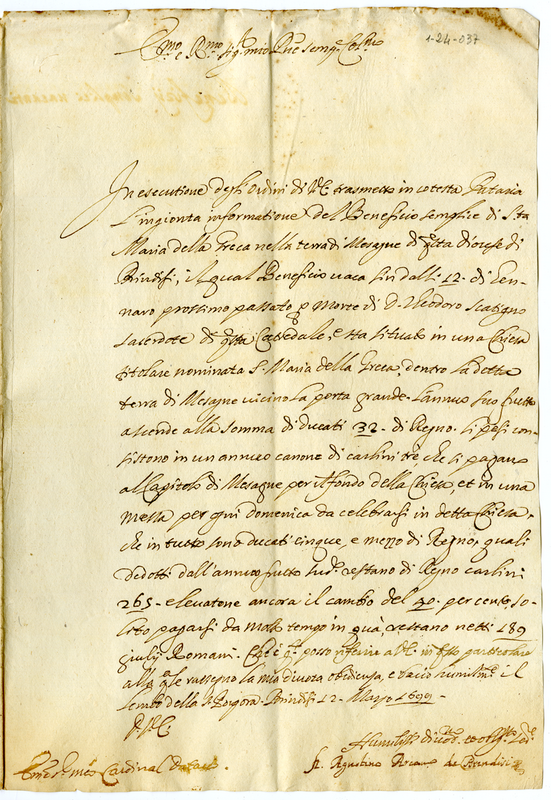 1-24-037
Em.mo e R.mo Sig.r mio P.ne sempre Col.mo
In esecutione degl'Ordini di V.E. trasmetto in cotesta Dataria
l'ingionta informatione del Beneficio semplice di S.ta
Maria della Greca nella terra di Mesagne di q.sta Diocese di
Brindisi, il qual Beneficio vaca sin dalli 12. di Gen-
naro prossimo passato p morte di D. Teodoro Scatigno
sacerdote di q.sta Catedrale, e sta situato in una Chiesa
titolare nominata S. Maria della Greca, dentro la detta
terra di Mesagne vicino la porta grande. L'annuo suo frutto
ascende alla somma di ducati 32. di Regno. li pesi con-
sistono in un annuo canone di carlini tre che si pagano
al Capitolo di Mesagne per il fondo della Chiesa, et in una
messa per ogni Domenica da celebrarsi in detta Chiesa,
che in tutto sono ducati cinque, e mezzo di Regno, quali
dedotti dall'annuo frutto sud.o restano di Regno carlini
265. e levatone ancora il cambio del 40. per cento so-
lito pagarsi da molto tempo in quà, restano netti 189
giulij Romani. Ch'è q.to posso riferire a V.E. in q.sto particolare
alla q.le rassegno la mia divota obedienza, e bacio humilm.te il
lembo della S. Porpora. Brindisi 12. Marzo 1699.
D. V. E.
Em.o Sig.r Cardinal Datario
Humiliss. Divotiss.
F. Agostino Arcives. di Brindisi